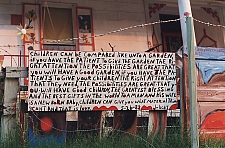 CHILDREN CAN BE COMPARE LIKE UNTO A GARDEN
if you HAVE THE PATIENT TO GIVE THE GARDEN THE R
GHT ATTENTION THE POSSIBILITIES ARE GREAT THAT
you WILL HAVE A GOOD GARDEN if you HAVE THE PA
TIENTS TO GIVE your CHILDREN THE RIGHT ATTENTION
THAT THEY NEED THE POSSIBILITIES ARE GREAT THAT you
WILL HAVE GOOD CHILDREN. THE GREATEST BLESSING
AND THE BEST GIFTS IN THE WORLD TO A MAN AND HIS WIFE
IS A NEW BORN BABY. CHILDREN CAN GIVE you WHAT MATERIAL